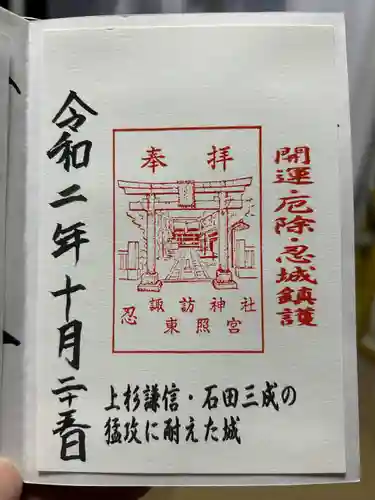 開運・厄除・忍城鎮護
奉拝
諏訪神社
忍東照宮
令和二年十月二十五日
上杉謙信・石田三成の
猛攻に耐えた城